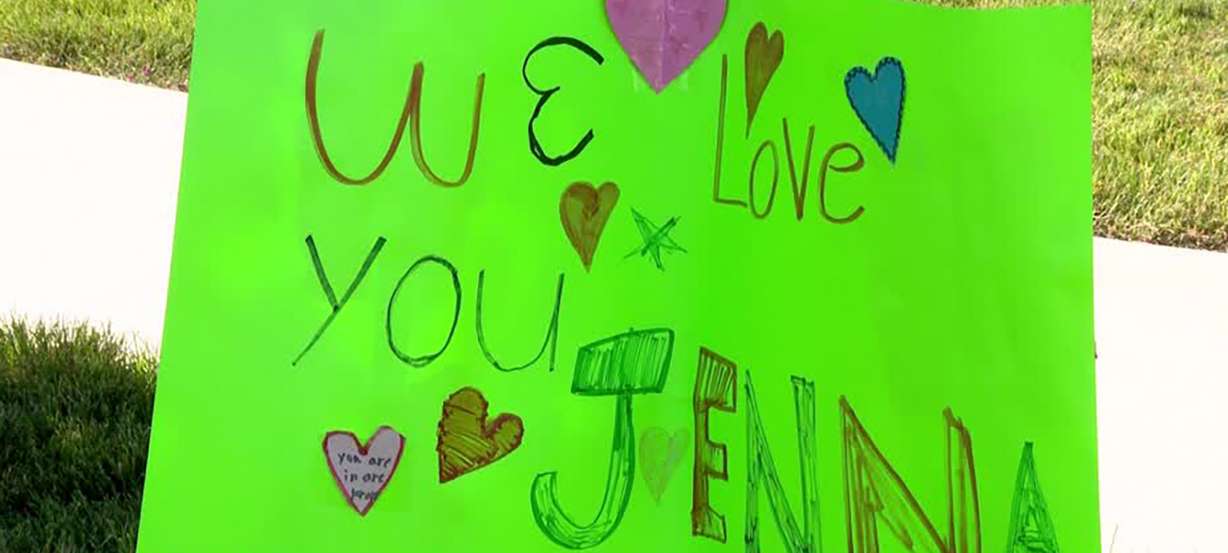 WE Love
YOU
JENNA
you are
in are